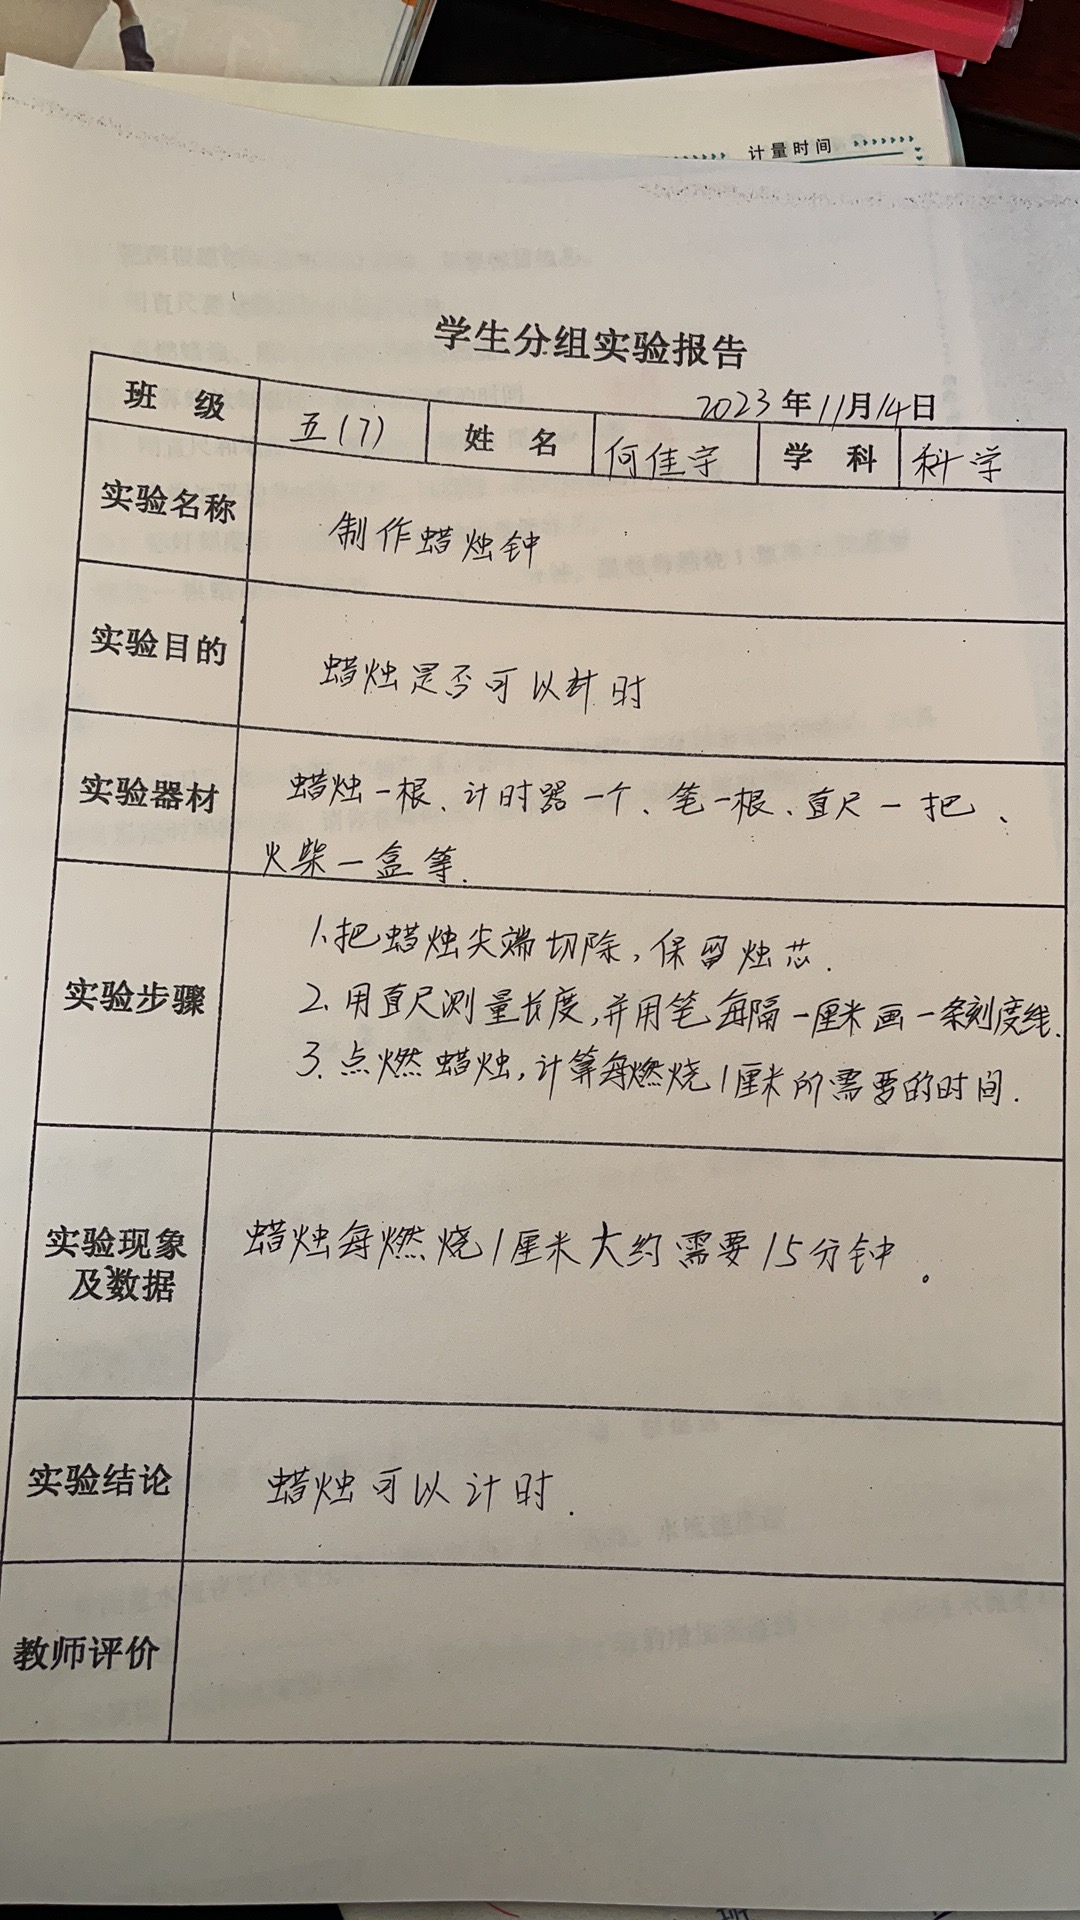 计量时间
学生分组实验报告
2023年11月14日
班级 五(7) 姓名 何佳宇 学科 科学
实验名称 制作蜡烛钟
实验目的 蜡烛是否可以计时
实验器材 蜡烛一根、计时器一个、笔一根、直尺一把、
火柴一盒等.
实验步骤
1.把蜡烛尖端切除,保留烛芯.
2.用直尺测量长度,并用笔每隔一厘米画一条刻度线.
3.点燃蜡烛,计算每燃烧1厘米所需要的时间.
实验现象
及数据
蜡烛每燃烧1厘米大约需要15分钟。
实验结论 蜡烛可以计时.
教师评价